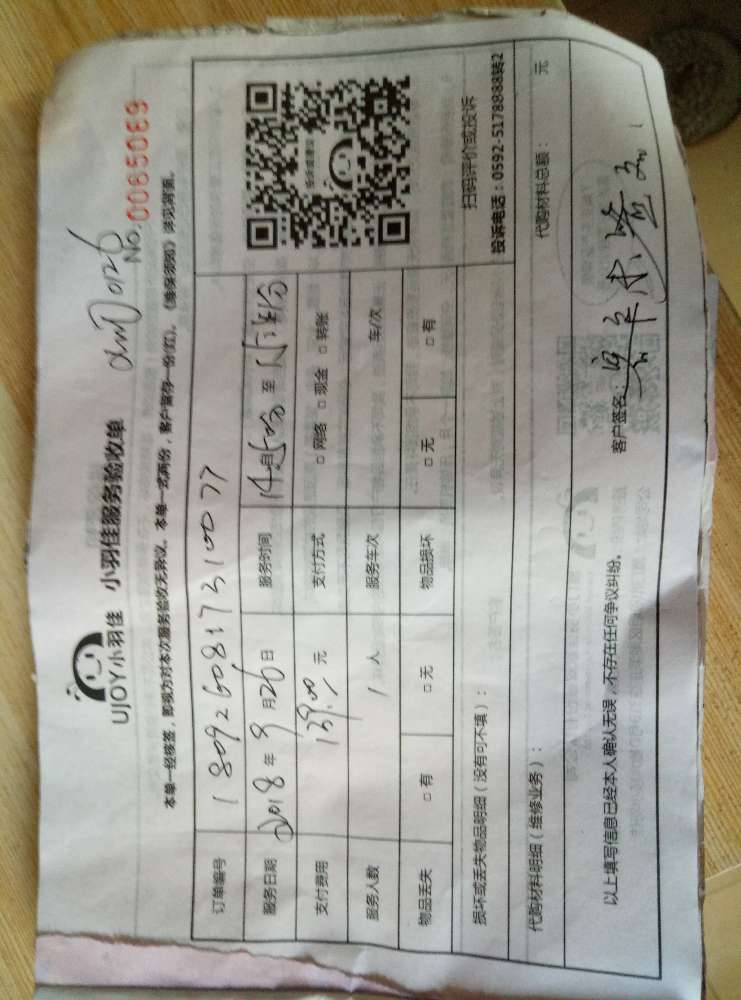 UJOY小羽佳 小羽佳服务验收单
No. 0065069
本单一经核签，即视为对本次服务验收无异议。本单一式两份，客户留存一份(红)。《维保须知》详见背面。
订单编号 1809260817310077
服务日期 2018年9月26日 服务时间 至
支付费用 139.00元 支付方式 □网络 □现金 □转账
服务人数 1人 服务车次 车/次
物品丢失 □有 □无 物品损坏 □无 □有
扫码评价或投诉
投诉电话：0592-5178888转2
损坏或丢失物品明细（没有可不填）：
代购材料明细（维修业务）： 代购材料总额： 元
以上填写信息已经本人确认无误，不存在任何争议纠纷。 客户签名：